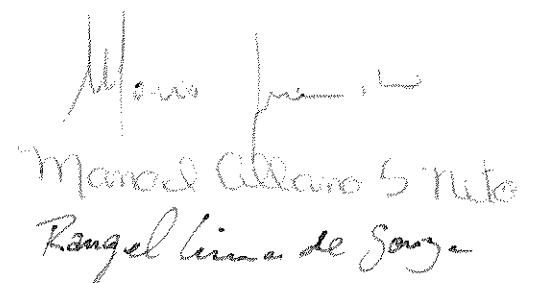 Mario
Manoel Allano S Neto
Rangel Lima de Souza